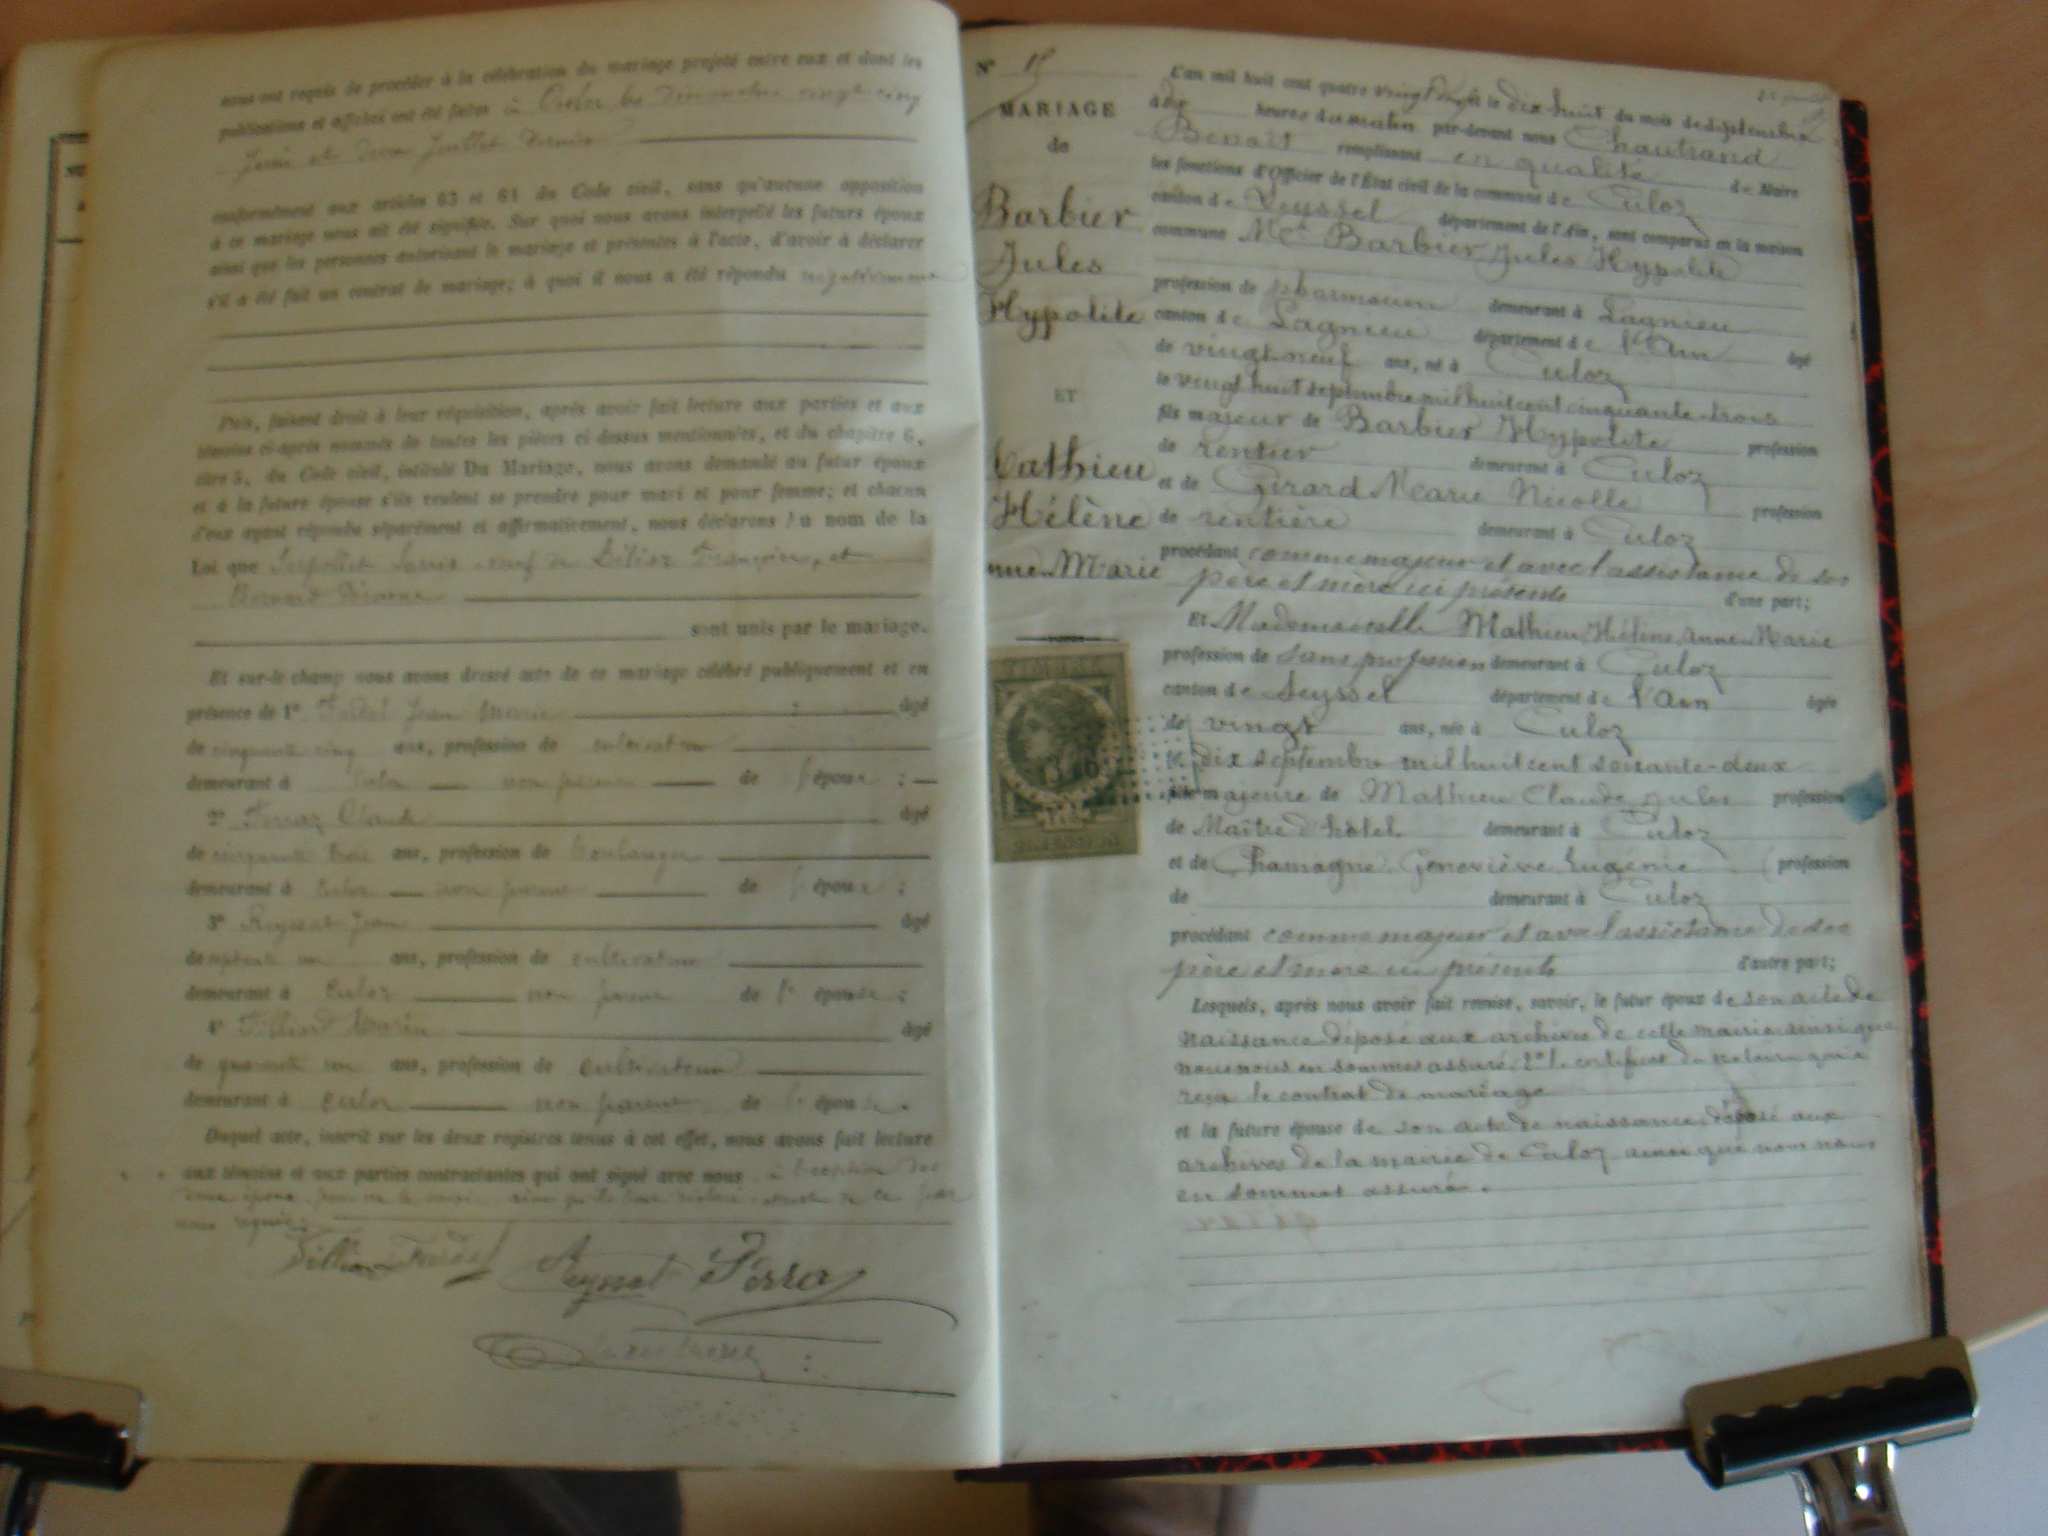 nous ont requis de procéder à la célébration du mariage projeté entre eux et dont les
publications et affiches ont été faites à Culoz les dimanches vingt cinq
Juin et deux Juillet dernier
conformément aux articles 63 et 64 du Code civil, sans qu'aucune opposition
à ce mariage nous ait été signifiée. Sur quoi nous avons interpellé les futurs époux
ainsi que les personnes autorisant le mariage et présentes à l'acte, d'avoir à déclarer
s'il a été fait un contrat de mariage; à quoi il nous a été répondu négativement
Puis, faisant droit à leur réquisition, après avoir fait lecture aux parties et aux
témoins ci-après nommés de toutes les pièces ci-dessus mentionnées, et du chapitre 6,
titre 5, du Code civil, intitulé Du Mariage, nous avons demandé au futur époux
et à la future épouse s'ils veulent se prendre pour mari et pour femme; et chacun
d'eux ayant répondu séparément et affirmativement, nous déclarons au nom de la
Loi que Serpollet Louis veuf de Françoise, et
Bernard
sont unis par le mariage.
Et sur-le-champ nous avons dressé acte de ce mariage célébré publiquement et en
présence de 1° Jean Marie âgé
de cinquante cinq ans, profession de cultivateur
demeurant à Culoz non parent de l'époux ;
2° Ferraz Claude âgé
de cinquante trois ans, profession de boulanger
demeurant à Culoz non parent de l'époux ;
3° Reynat Jean âgé
de ans, profession de cultivateur
demeurant à Culoz non parent de l' épouse ;
4° Tilliond Marin âgé
de quarante un ans, profession de cultivateur
demeurant à Culoz non parent de l'épouse.
Duquel acte, inscrit sur les deux registres tenus à cet effet, nous avons fait lecture
aux témoins et aux parties contractantes qui ont signé avec nous à l'exception des
deux époux pour ne le savoir ainsi qu'ils l'ont déclaré de ce par
nous requis.
Reynat
N° 15
MARIAGE
de
Barbier
Jules
Hypolite
ET
Mathieu
Hélène
Anne Marie
TIMBRE
L'an mil huit cent quatre vingt deux et le dix huit du mois de septembre
à dix heures du matin par-devant nous Chautrand
Benoit remplissant en qualité de Maire
les fonctions d'Officier de l'État civil de la commune de Culoz
canton de Seyssel département de l'Ain, sont comparus en la maison
commune Mr Barbier Jules Hypolite
profession de pharmacien demeurant à Lagnieu
canton de Lagnieu département de l'Ain âgé
de vingt neuf ans, né à Culoz
le vingt huit septembre mil huit cent cinquante-trois
fils majeur de Barbier Hypolite profession
de rentier demeurant à Culoz
et de Girard Marie Nicolle profession
de rentière demeurant à Culoz
procédant comme majeur et avec l'assistance de ses
père et mère ici présents d'une part;
Et Mademoiselle Mathieu Hélène Anne Marie
profession de sans profession demeurant à Culoz
canton de Seyssel département de l'Ain âgée
de vingt ans, née à Culoz
le dix septembre mil huit cent soixante-deux
fille majeure de Mathieu Claude Jules profession
de Maître d'hôtel. demeurant à Culoz
et de Chamagne Geneviève Eugénie profession
de demeurant à Culoz
procédant comme majeur et avec l'assistance de ses
père et mère ici présents d'autre part;
Lesquels, après nous avoir fait remise, savoir, le futur époux de son acte de
naissance déposé aux archives de cette mairie ainsi que
nous nous en sommes assuré, 2° l. certificat du notaire qui a
reçu le contrat de mariage
et la future épouse de son acte de naissance déposé aux
archives de la mairie de Culoz ainsi que nous nous
en sommes assuré.